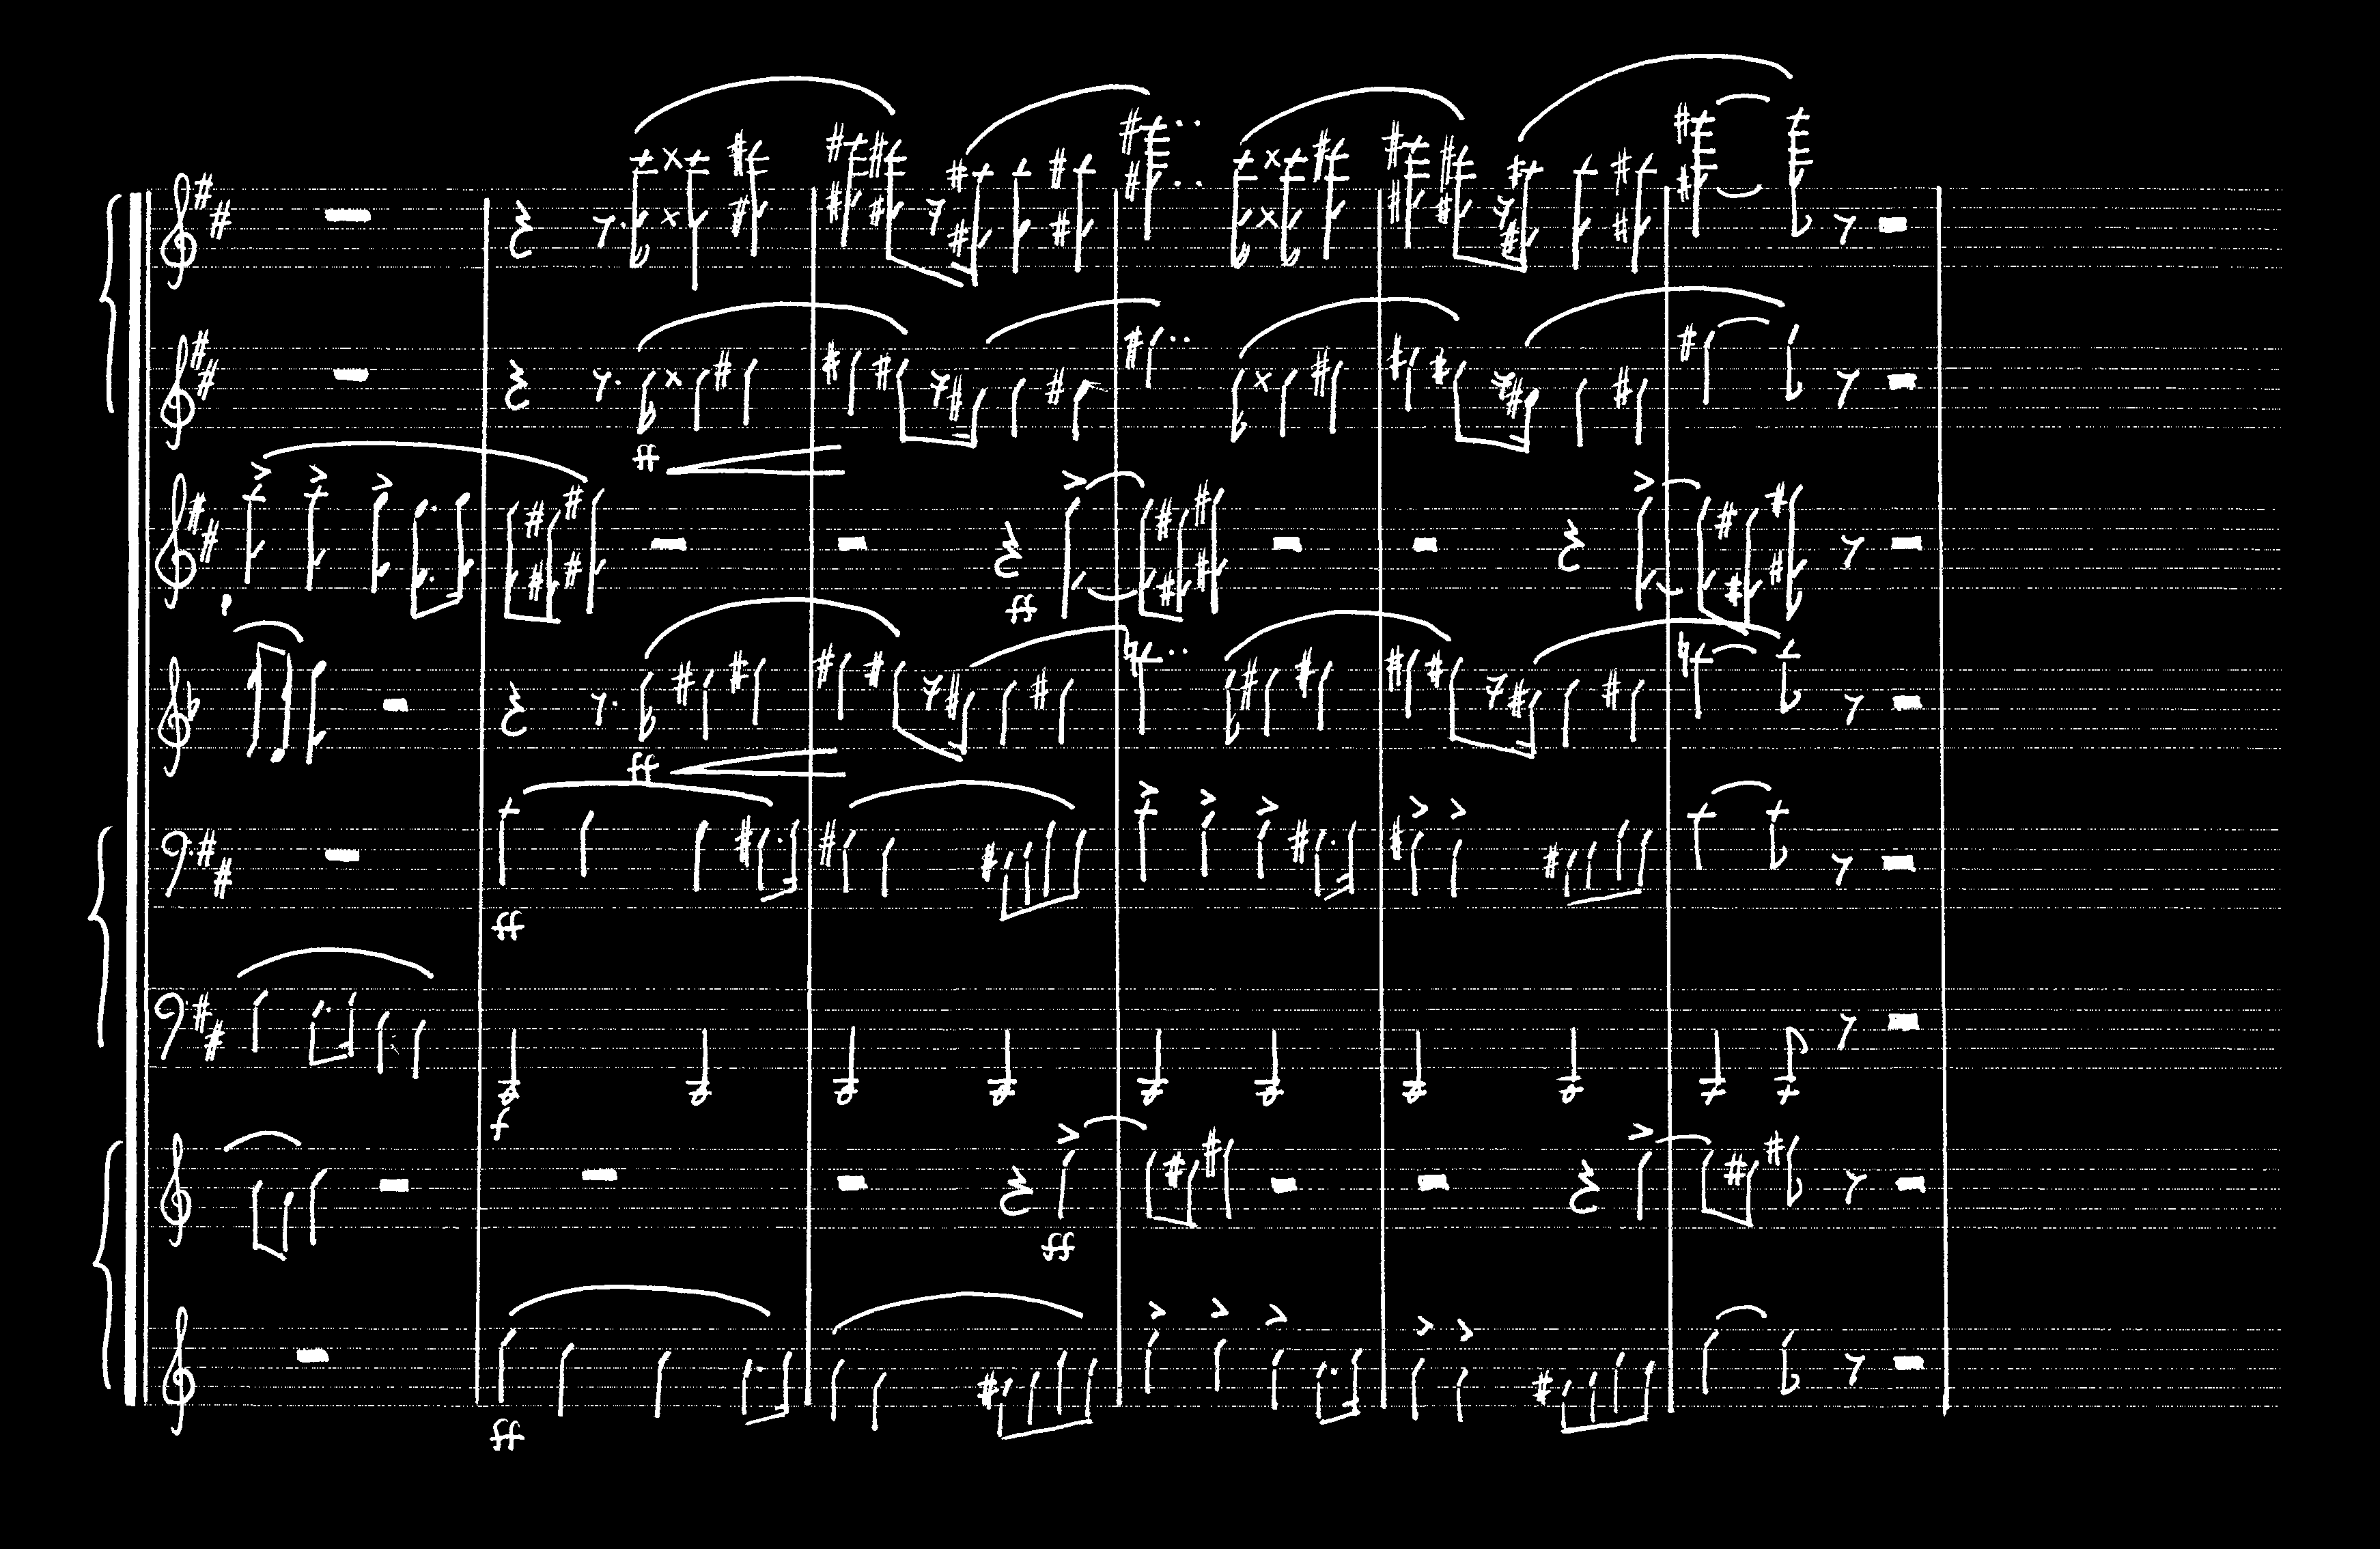 ff
ff
ff
ff
f
ff
ff